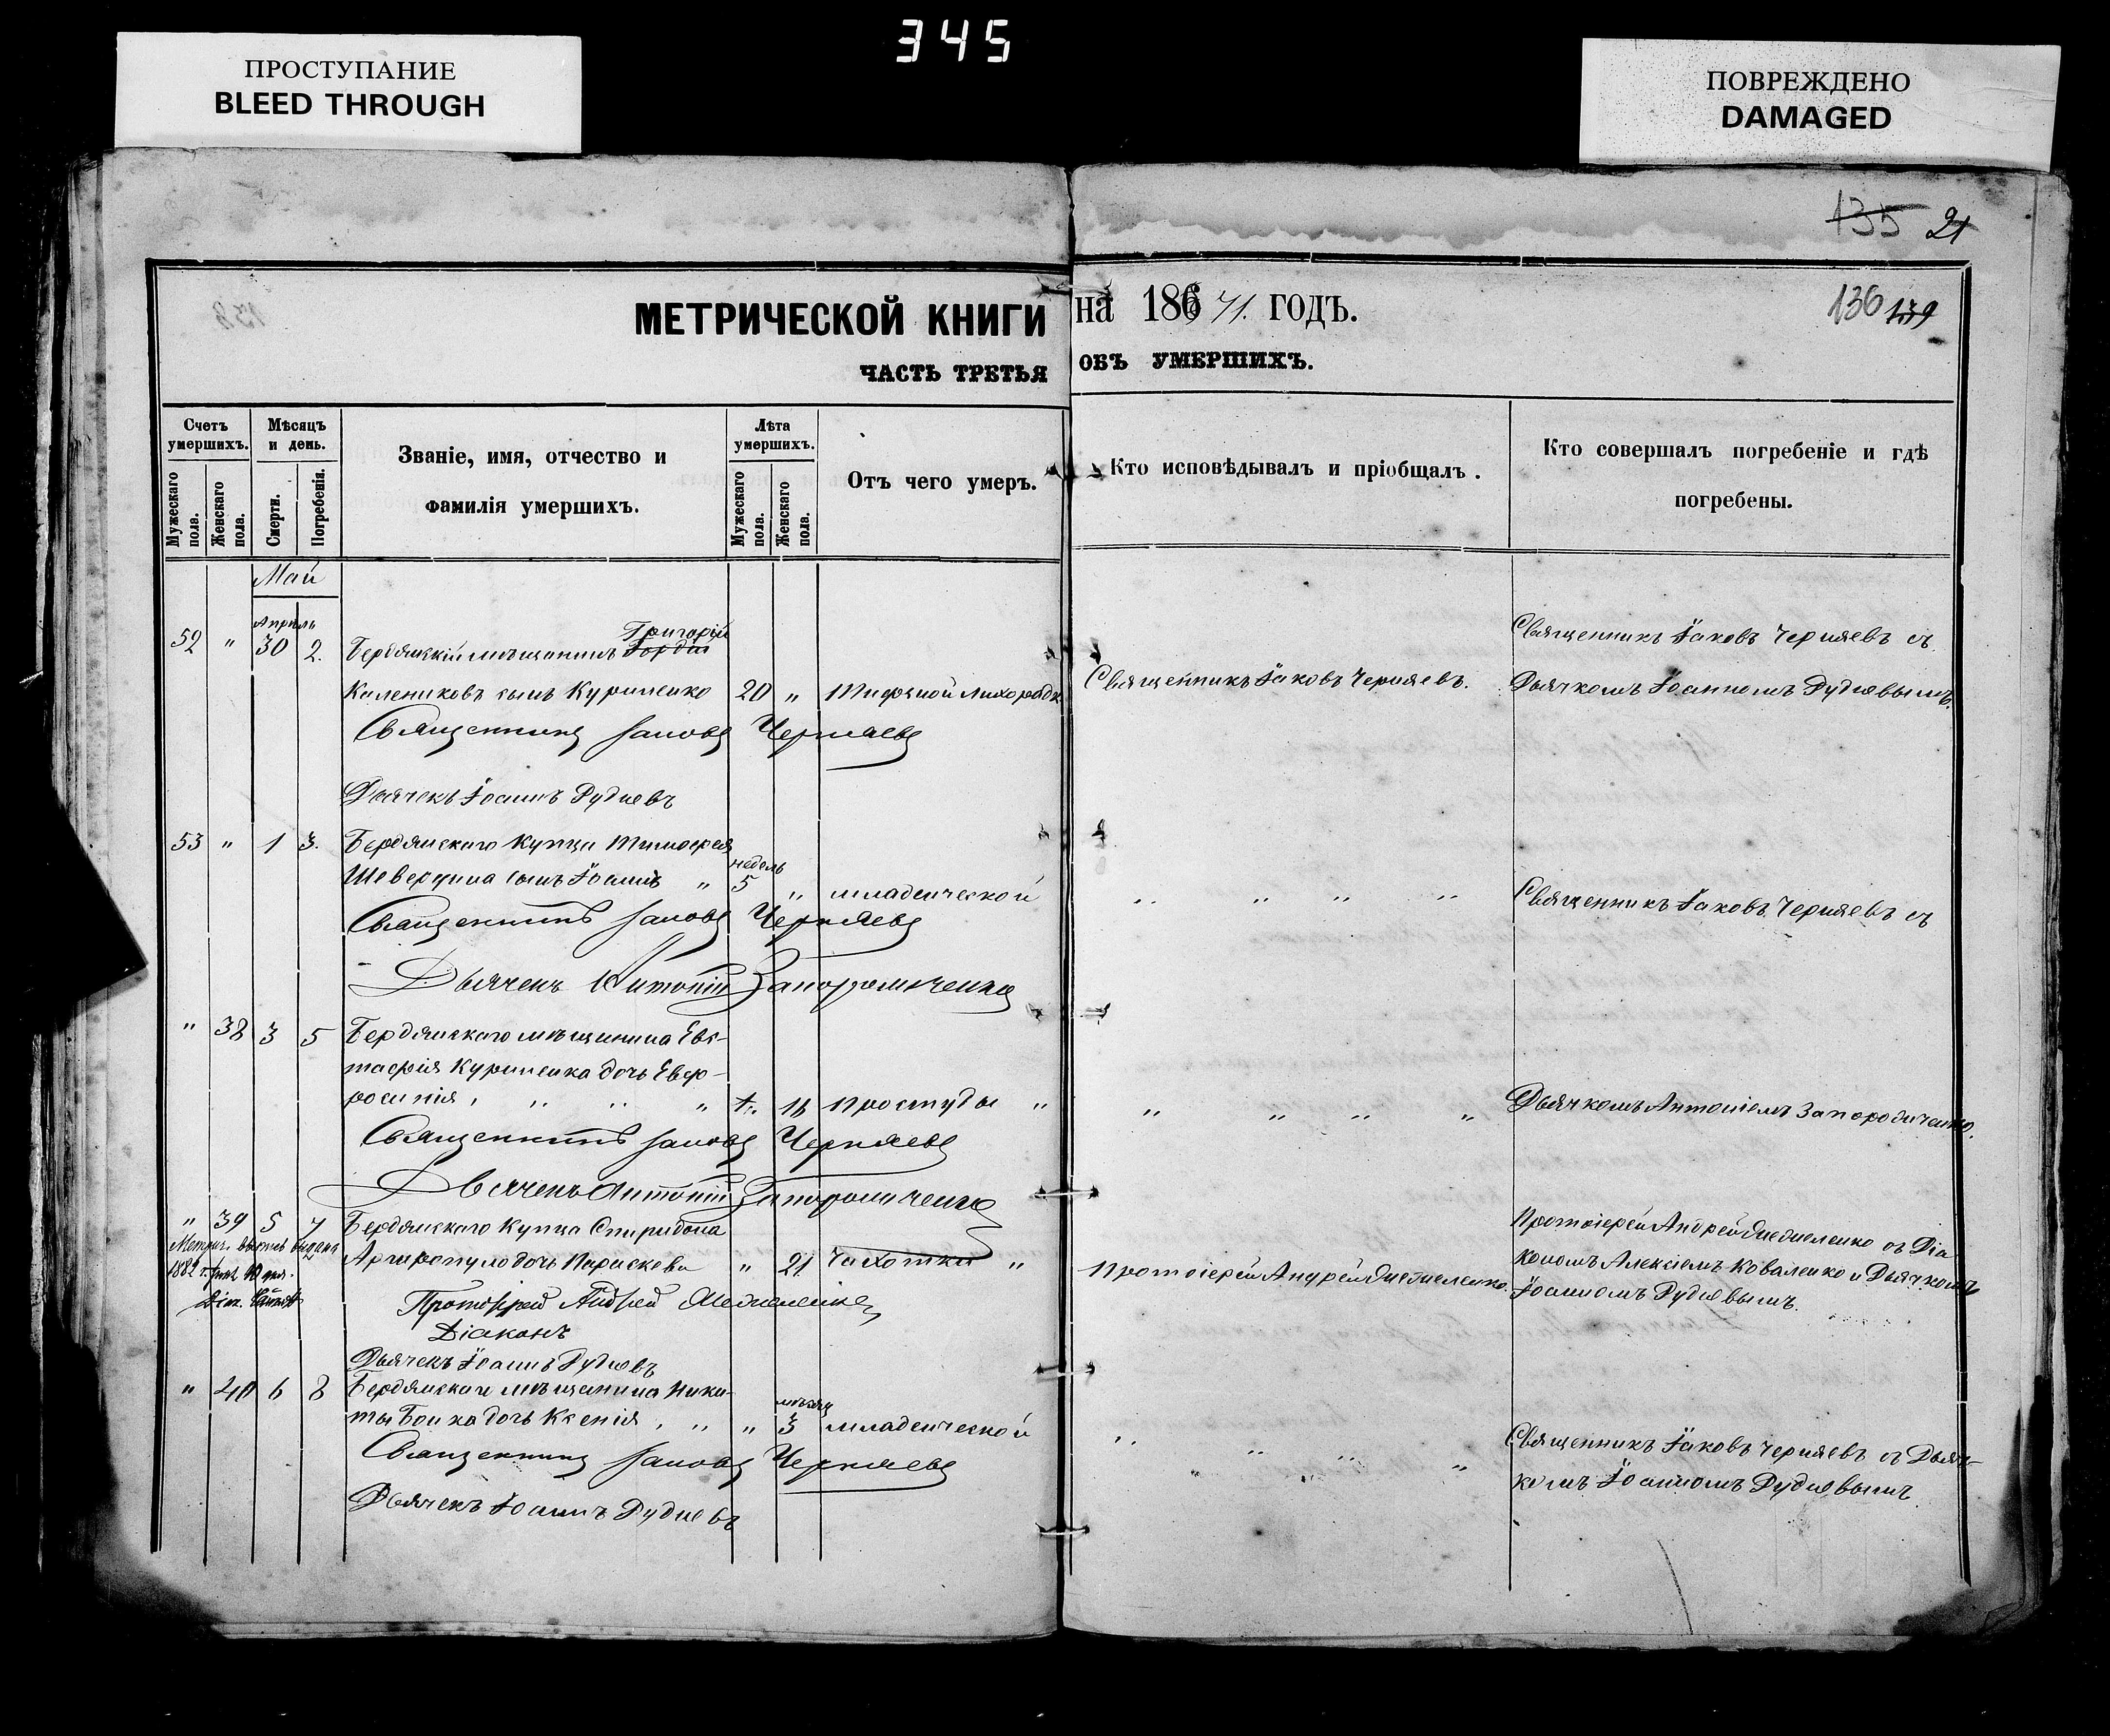 345
ПРОСТУПАНИЕ
BLEED THROUGH
ПОВРЕЖДЕНО
DAMAGED
135 21
МЕТРИЧЕСКОЙ КНИГИ на 186 71. ГОДЪ.
136 139
ЧАСТЬ ТРЕТЬЯ ОБЪ УМЕРШИХЪ.
Счетъ умершихъ.
Мужескаго пола.
Женскаго пола.
Мѣсяцъ и день.
Смерти.
Погребенія.
Званіе, имя, отчество и
фамилія умершихъ.
Лѣта умершихъ.
Мужескаго пола.
Женскаго пола.
Отъ чего умеръ.
Кто исповѣдывалъ и пріобщалъ.
Кто совершалъ погребеніе и гдѣ
погребены.
Май
Апрѣль
Григорій
52 " 30 2. Бердянскій мѣщанинъ Гордій
Калениковъ сынъ Куриленко 20 "
Священникъ Іаковъ Черняевъ
Дьячекъ Іоаннъ Рудневъ
Священникъ Іаковъ Черняевъ.
Священникъ Іаковъ Черняевъ съ
Дьячкомъ Іоанномъ Рудневымъ.
53 " 1 3. Бердянскаго Купца Тимофея
недѣль
сынъ Іоаннъ " 5 " младенческой
Священникъ Іаковъ Черняевъ
Дьячекъ Антоній
Священникъ Іаковъ Черняевъ съ
" 38 3 5 Бердянскаго мѣщанина Евс-
тафія Куриленка дочь Евф-
росинія " простуды "
Священникъ Іаковъ Черняевъ
Дьячекъ Антоній
Дьячкомъ Антоніемъ
" 39 5 7 Бердянскаго Купца Спиридона
Аргиропуло дочь Параскева " 21. Чахотки "
1882 г.
Протоіерей Андрей
Діаконъ
Дьячекъ Іоаннъ Рудневъ
Протоіерей Андрей
Протоіерей Андрей съ Діа-
кономъ Алексіемъ Коваленко и Дьячкомъ
Іоанномъ Рудневымъ.
" 40 6 8 Бердянскаго мѣщанина Ники-
мѣсяц
ты Бойка дочь Ксенія " 3 младенческой
Священникъ Іаковъ Черняевъ
Дьячекъ Іоаннъ Рудневъ
Священникъ Іаковъ Черняевъ съ Дьяч-
комъ Іоанномъ Рудневымъ